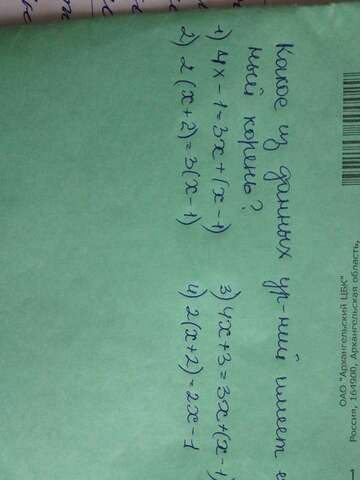 Какое из данных ур-ний имеет
ный корень?
1) 4x - 1 = 3x + (x - 1)
2) 2(x+2) = 3(x - 1)
3) 4x + 3 = 3x + (x - 1)
4) 2(x+2) = 2x - 1
ОАО "Архангельский ЦБК"
Россия, 164900, Архангельская область,